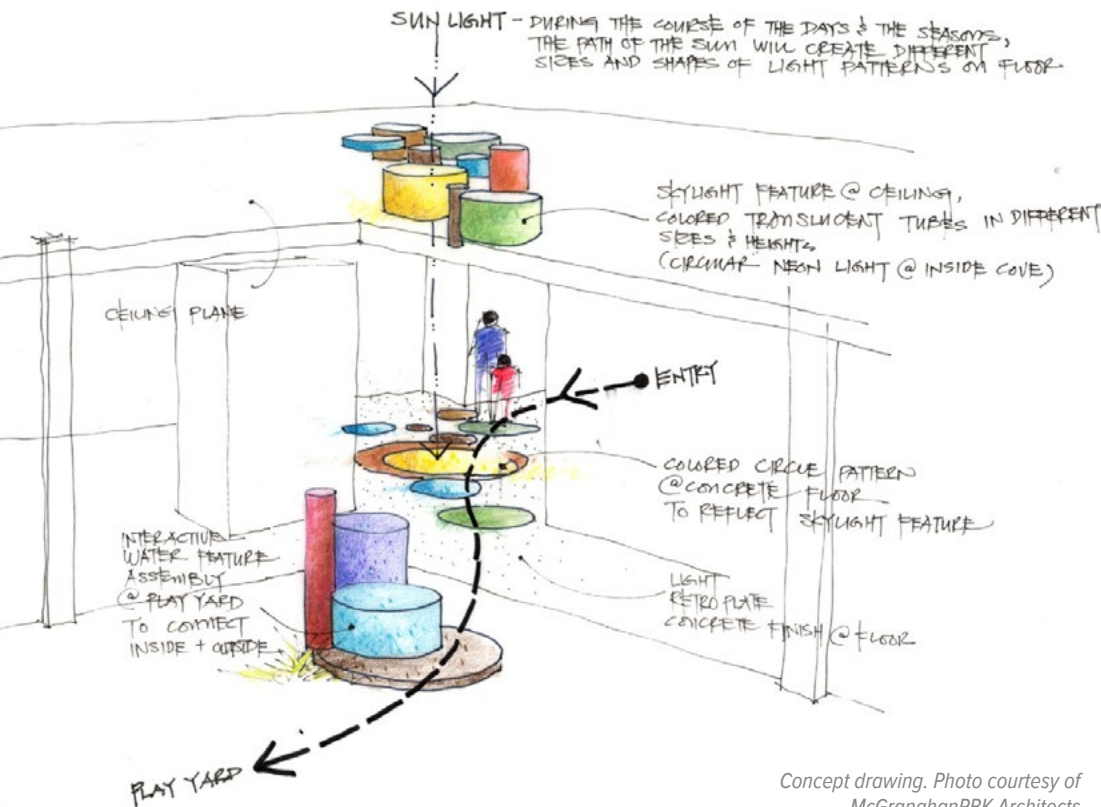 SUN LIGHT - DURING THE COURSE OF THE DAYS & THE SEASONS,
THE PATH OF THE SUN WILL CREATE DIFFERENT
SIZES AND SHAPES OF LIGHT PATTERNS ON FLOOR
SKYLIGHT FEATURE @ CEILING,
COLORED TRANSLUCENT TUBES IN DIFFERENT
SIZES & HEIGHTS
(CIRCULAR NEON LIGHT @ INSIDE COVE)
CEILING PLANE
ENTRY
COLORED CIRCLE PATTERN
@CONCRETE FLOOR
TO REFLECT SKYLIGHT FEATURE
INTERACTIVE
WATER FEATURE
ASSEMBLY
@ PLAY YARD
TO CONNECT
INSIDE + OUTSIDE
LIGHT
RETROPLATE
CONCRETE FINISH @ FLOOR
PLAY YARD
Concept drawing. Photo courtesy of
McGranahanPBK Architects